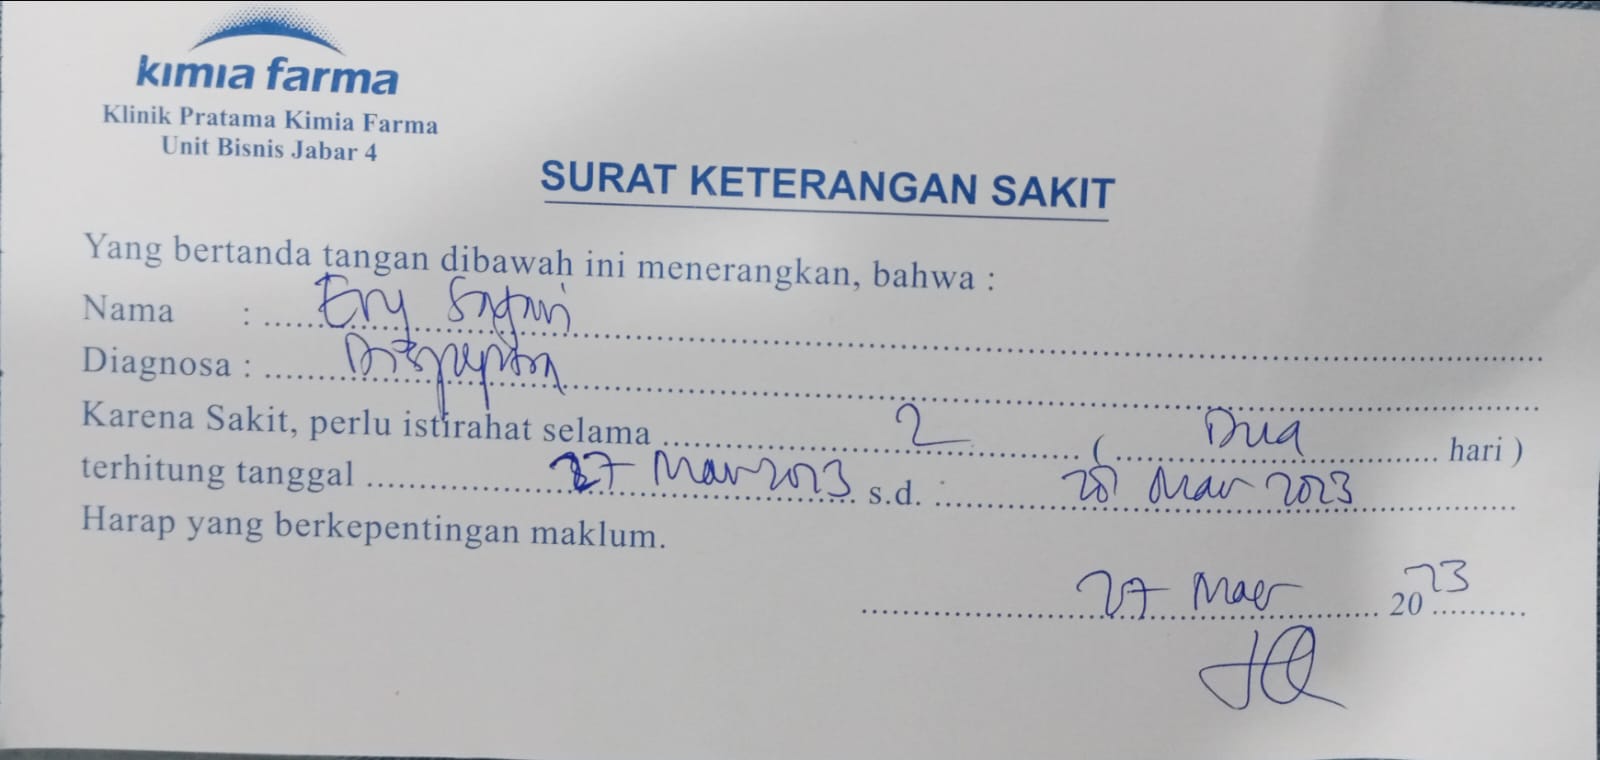 kimia farma
Klinik Pratama Kimia Farma
Unit Bisnis Jabar 4
SURAT KETERANGAN SAKIT
Yang bertanda tangan dibawah ini menerangkan, bahwa :
Nama : Ery
Diagnosa : Dispepsia
Karena Sakit, perlu istirahat selama 2 ( Dua hari )
terhitung tanggal 27 Mar 2023 s.d. 28 Mar 2023
Harap yang berkepentingan maklum.
27 Mar 2023